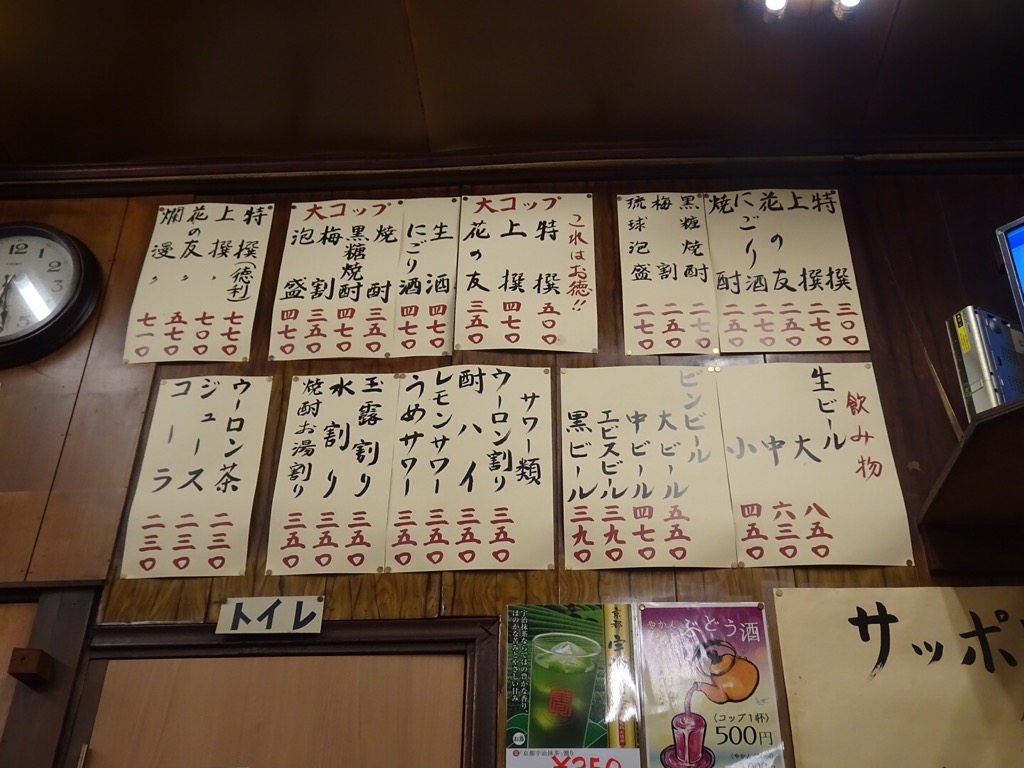 特撰 三〇〇
上撰 二七〇
花の友 二五〇
にごり酒 二七〇
焼酎 二五〇
黒糖焼酎 二七〇
梅割 二五〇
琉球泡盛 二七〇
これはお徳!!
大コップ
特撰 五〇〇
上撰 四七〇
花の友 三五〇
生酒 四七〇
にごり酒 四七〇
大コップ
焼酎 三五〇
黒糖焼酎 四七〇
梅割 三五〇
泡盛 四七〇
特撰(徳利) 七七〇
上撰〃 七〇〇
花の友〃 五七〇
爛漫〃 七一〇
飲み物
生ビール
大 八五〇
中 六三〇
小 四五〇
ビンビール
大ビール 五五〇
中ビール 四七〇
エビスビール 三九〇
黒ビール 三九〇
サワー類
ウーロン割り 三五〇
酎ハイ 三五〇
レモンサワー 三五〇
うめサワー 三五〇
玉露割り 三五〇
水割り 三五〇
焼酎お湯割り 三五〇
ウーロン茶 二三〇
ジュース 二三〇
コーラ 二三〇
トイレ
宇治抹茶ならではの豊かな香り、
ほのかな苦みとやさしい甘み
京都 宇
お酒
「京都宇治抹茶」割り
¥350
やかん
ぶどう酒
(コップ1杯)
500円
サッポ